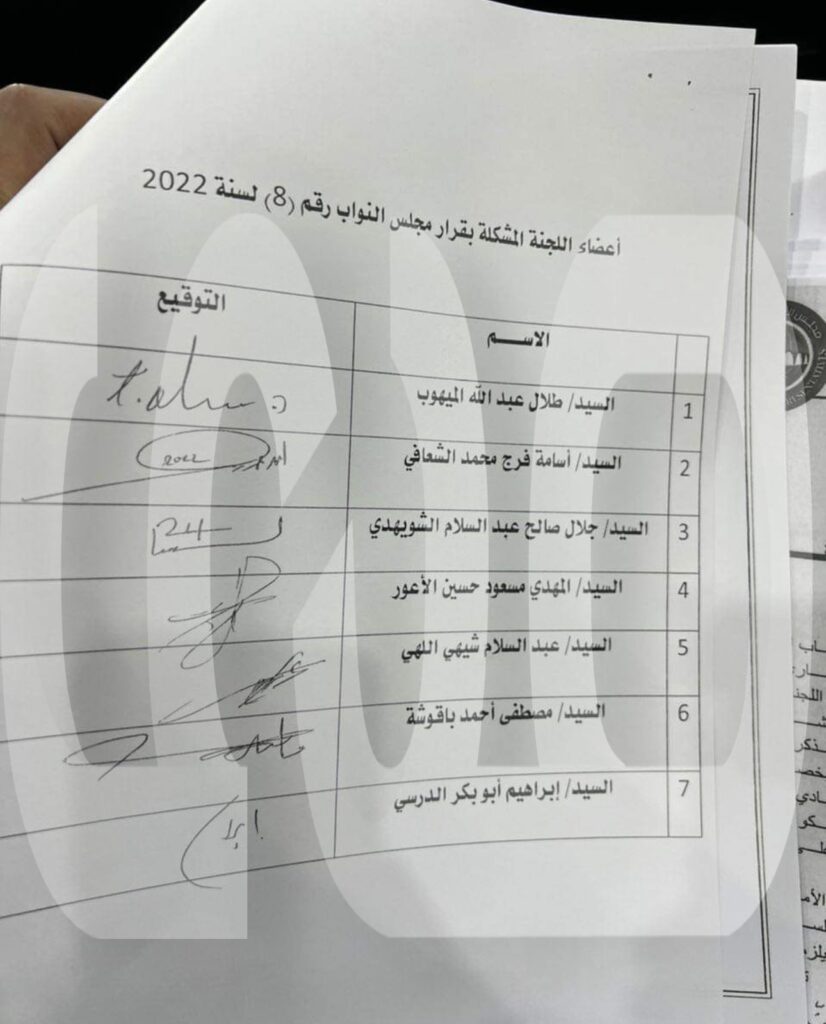 أعضاء اللجنة المشكلة بقرار مجلس النواب رقم (8) لسنة 2022
الاســـم التوقيع
1 السيد/ طلال عبد الله الميهوب
2 السيد/ أسامة فرج محمد الشعافي
2022
3 السيد/ جلال صالح عبد السلام الشويهدي
24
4 السيد/ المهدي مسعود حسين الأعور
5 السيد/ عبد السلام شيهي اللهي
6 السيد/ مصطفى أحمد باقوشة
7 السيد/ إبراهيم أبو بكر الدرسي